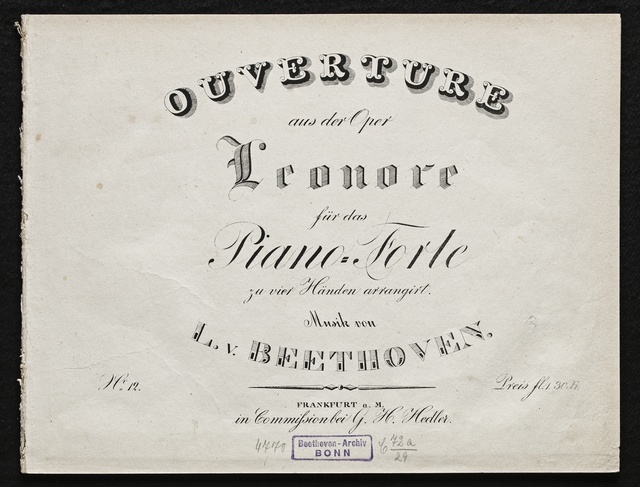 OUVERTURE
aus der Oper
Leonore
für das
Piano=Forte
zu vier Händen arrangirt.
Musik von
L. v. BEETHOVEN.
No. 12.
Preis fl. 1. 30. Kr.
FRANKFURT a. M.
in Commiſsion bei G. H. Hedler.
Beethoven-Archiv
BONN
C 72a
29